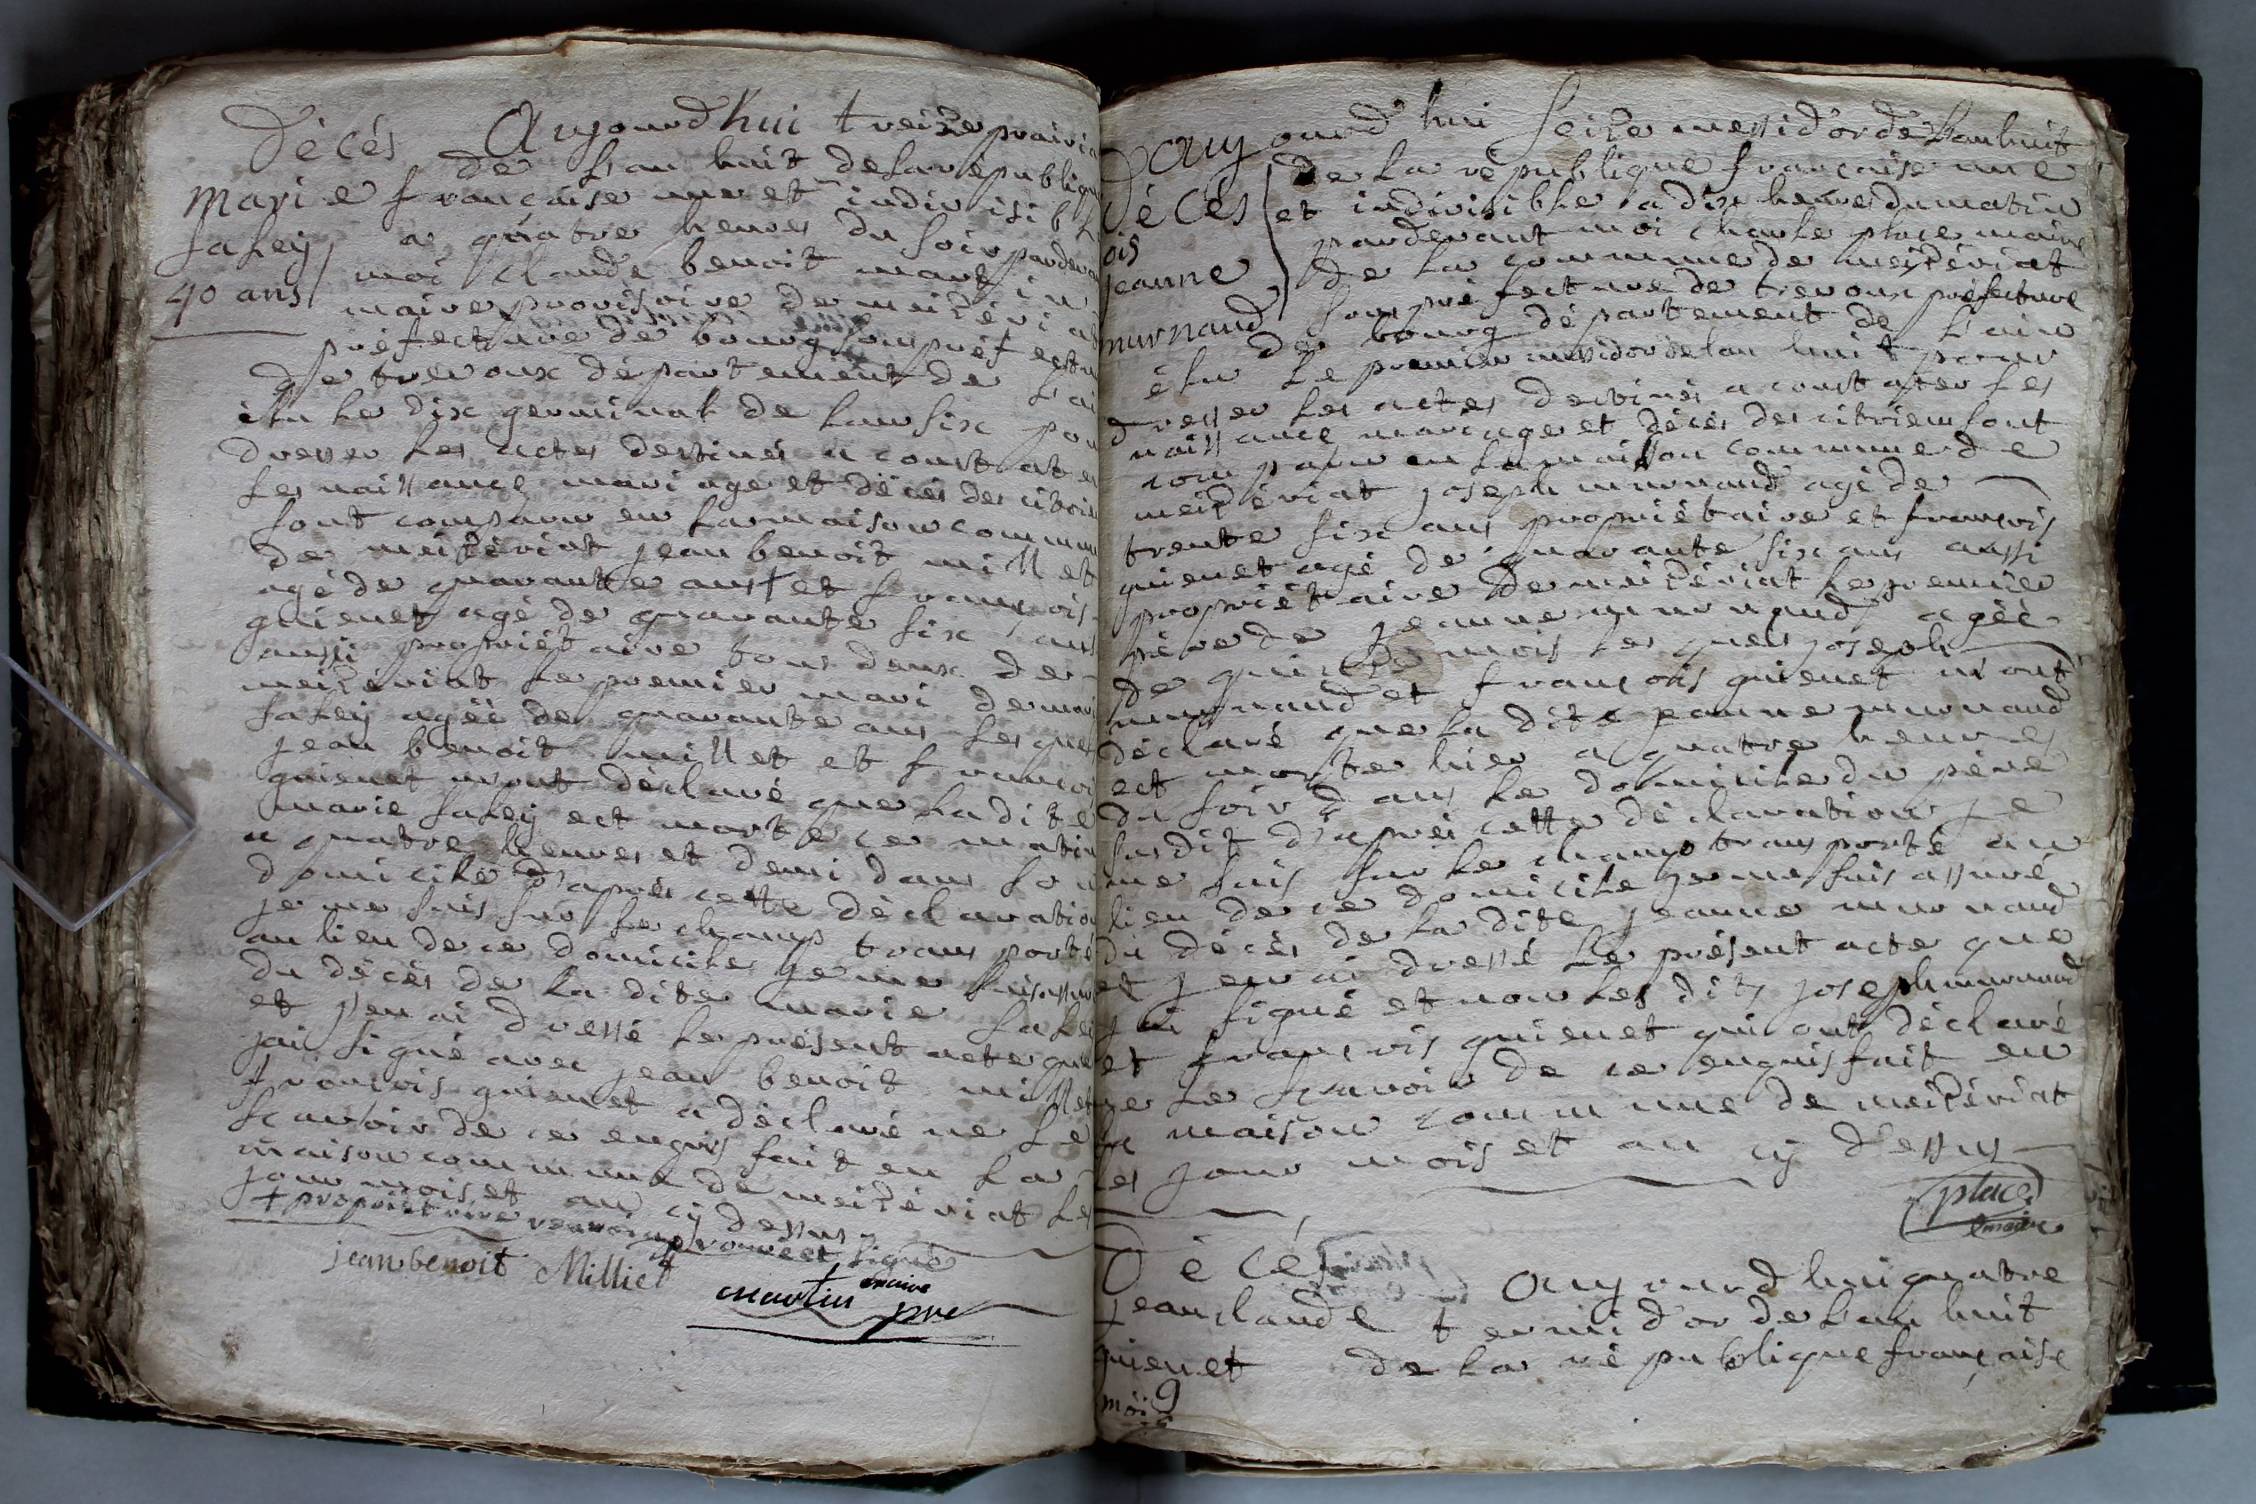 Décés Aujourd'hui treize prairia
de l'an huit de la républiqu
Marie française une et indivisibl
faley a quatre heures du soir pardevan
40 ans moi claude benoit martin
maire provisoire de meizériat
préfecture de bourg souspréfectu
de trevoux département de l'ai
élu le dix germinal de l'an six pou
dresser les actes destinés a constater
les naissance mariage et décés des citoie
sont comparu en la maison commun
de meizériat jean benoit millet
agé de quarante ans + et françois
guienet agé de quarante six ans
aussi propriétaire tous deux de
meizériat le premier mari de mari
faley agéé de quarante ans lesquel
jean benoit millet et françoi
guienet m'ont déclaré que la dite
marie faley est morte ce matin
a quatre heures et demi dans son
domicile d'aprés cette déclaration
je me suis sur le champ transporté
au lieu de ce domicile je me suis assuré
du décés de la dite marie faley
et j'en ai dressé le présent acte que
j'ai signé avec jean benoit millet
françois guienet a déclaré ne le
scavoir de ce enquis fait en la
maison commune de meizériat les
jour mois et an cÿ dessus
+ propriétaire renvoi approuvé et signé
jean benoit Milliet
martin maire
pre
aujourd'hui seize messidor de l'an huit
Décés de la république française une
et indivisible a dix heures du matin
ois pardevant moi charle place maire
jeanne de la commune de meizériat
murnaud sous préfecture de trevoux préfecture
de bourg département de l'ain
élu le premier messidor de l'an huit pour
dresser les actes destinés a constater les
naissance mariage et décés des citoiens sont
comparu en la maison commune de
meizériat joseph murnaud agé de
trente six ans propriétaire et françois
guienet agé de quarante six ans aussi
propriétaire de meizériat le premier
pére de jeanne murnaud agéé
de quinze mois les quels joseph
murnaud et françois guienet m'ont
déclaré que la dite jeanne murnaud
est morte hier a quatre heures
du soir dans le domicile du pére
susdit d'aprés cette déclaration je
me suis sur le champ transporté au
lieu de ce domicile je me suis assuré
du décés de la dite jeanne murnaud
et j'en ai dressé le présent acte que
j'ai signé et non les dits joseph murnaud
et françois guienet qui ont déclaré
ne le scavoir de ce enquis fait en
la maison commune de meizériat
les jour mois et an cÿ dessus
place
maire
Décés aujourd'hui quatre
jean claude termidor de l'an huit
guienet de la république française
9
mois